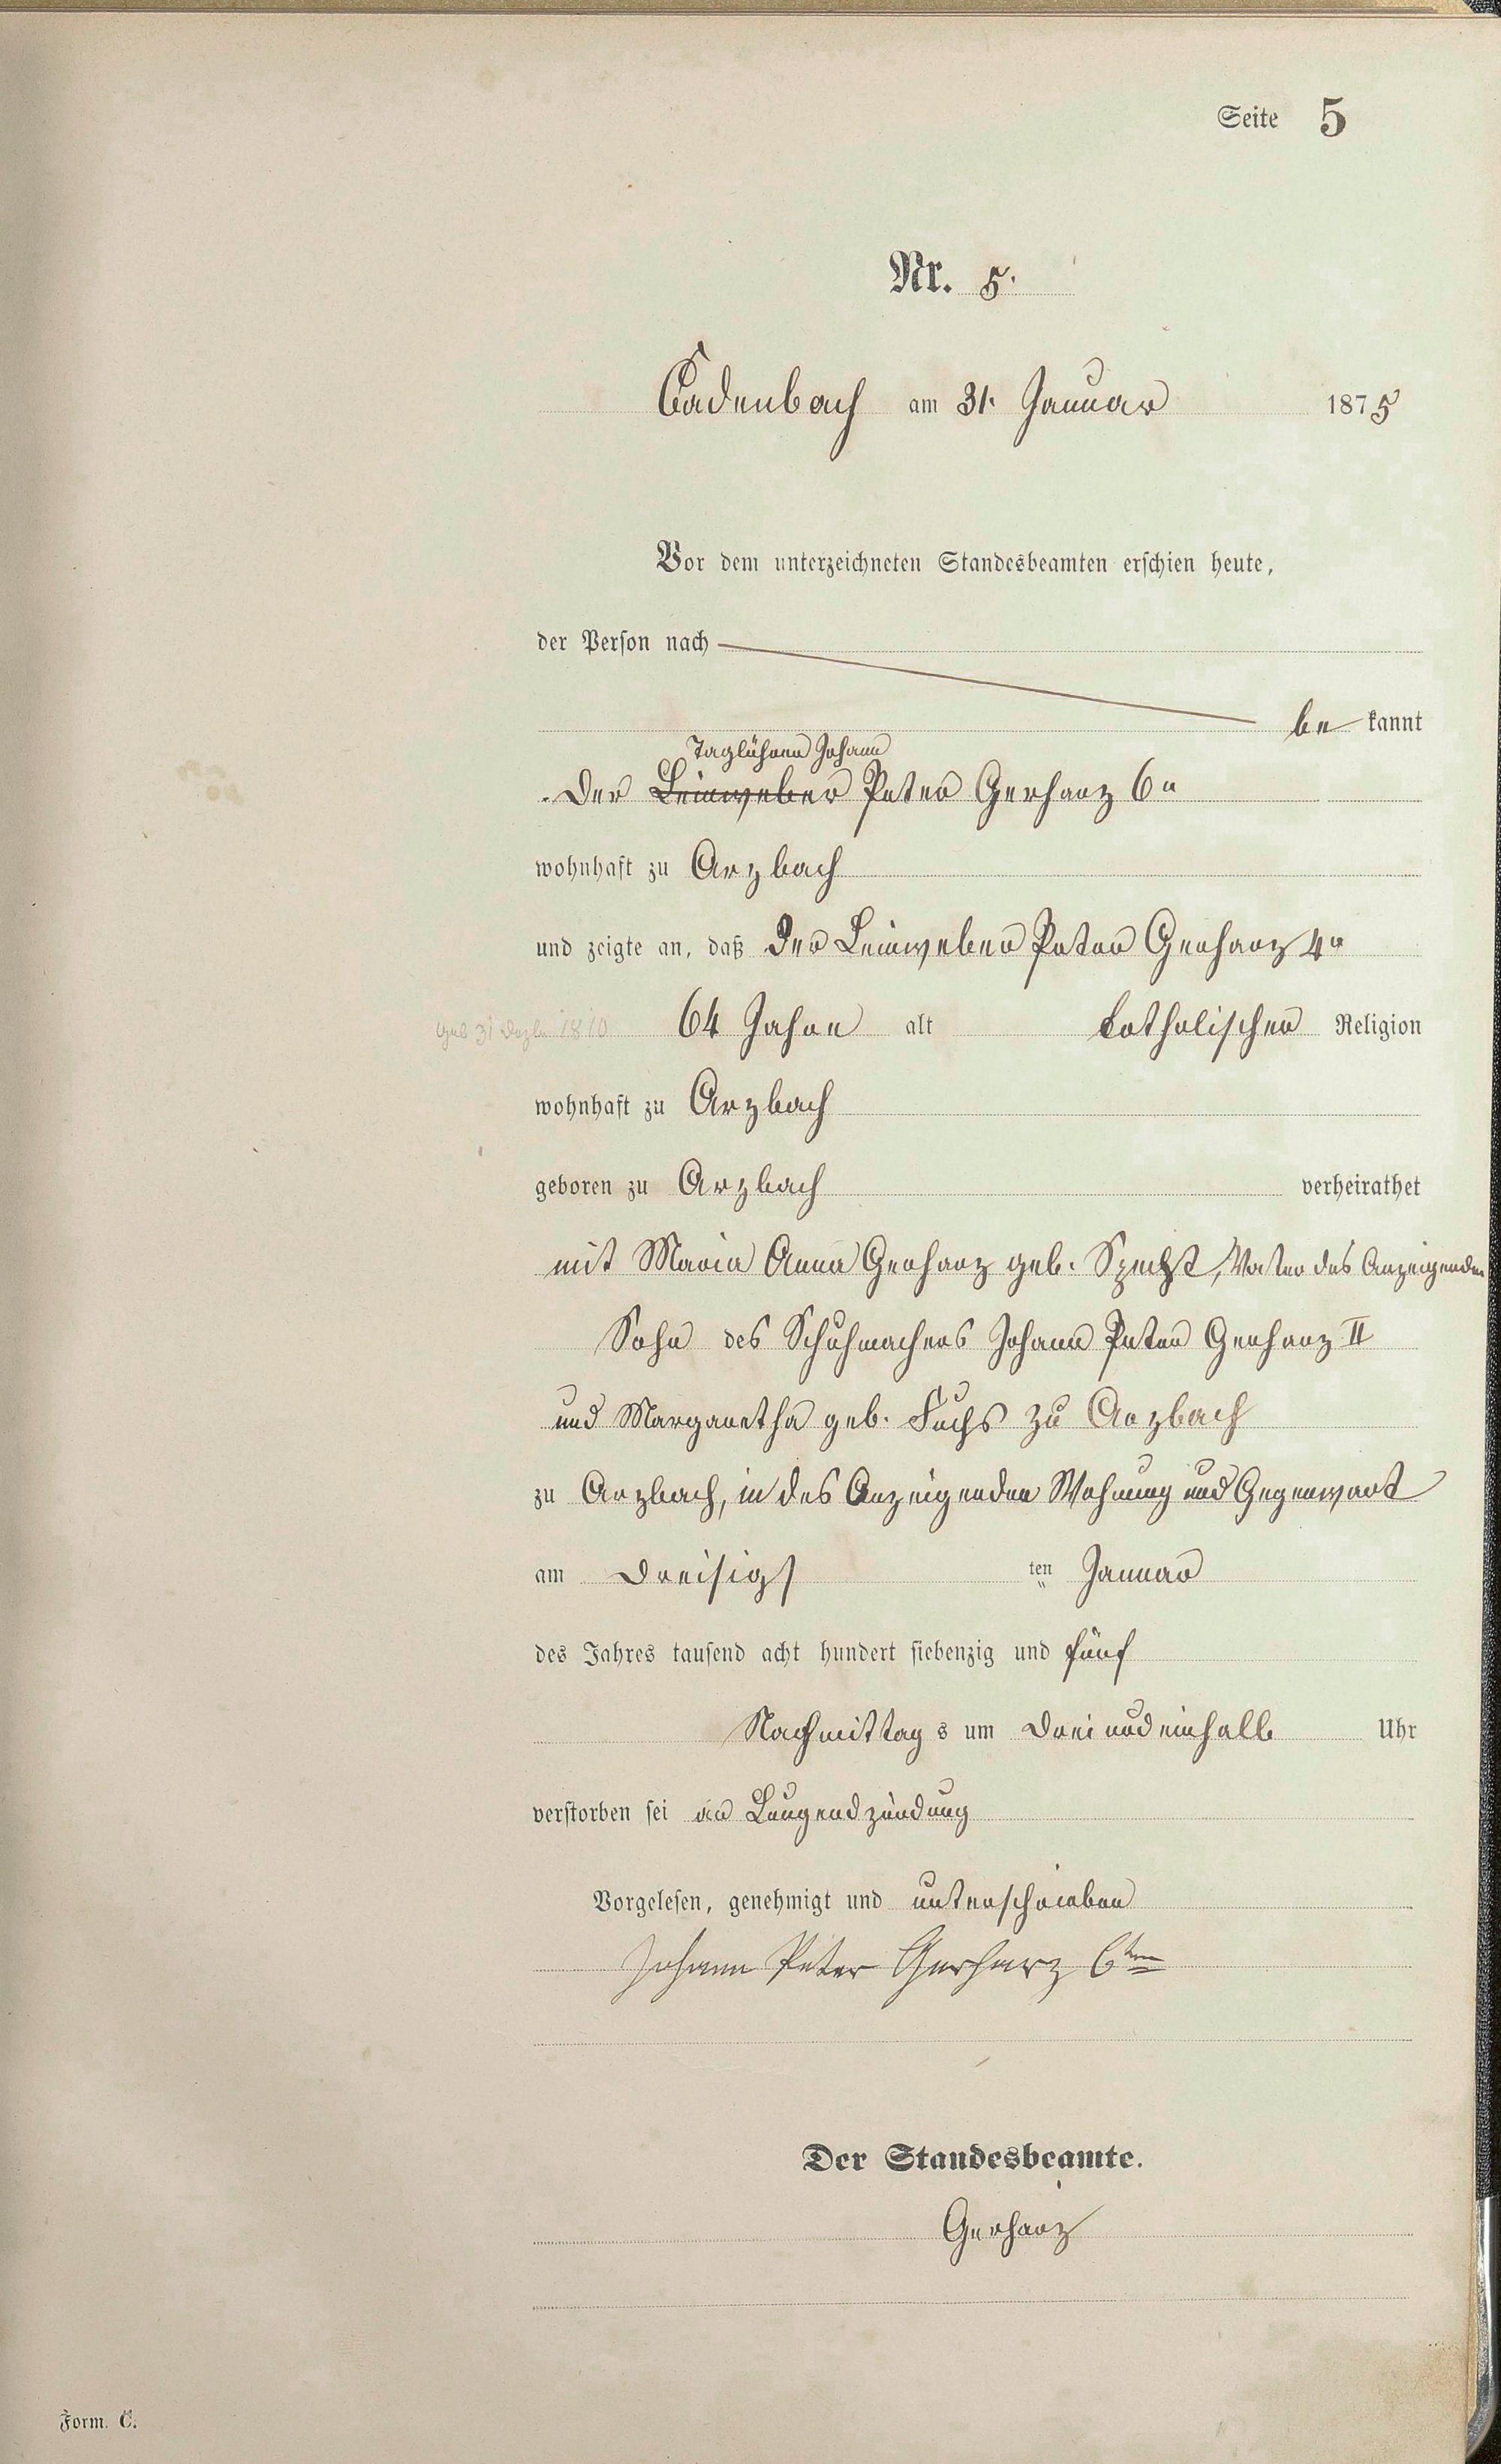 Seite 5
Nr. 5.
Cadenbach am 31. Januar 1875
Vor dem unterzeichneten Standesbeamten erschien heute,
der Person nach
be kannt
Taglöhner Johann
der Leinweber Peter Gerharz 6r
wohnhaft zu Arzbach
und zeigte an, daß der Leinweber Peter Gerharz 4r
geb 31 Dezbr 1810 64 Jahre alt katholischer Religion
wohnhaft zu Arzbach
geboren zu Arzbach verheirathet
mit Maria Anna Gerharz geb. Specht, Vater des Anzeigenden
Sohn des Schuhmachers Johann Peter Gerharz II
und Margaretha geb. Fuchs zu Arzbach
zu Arzbach, in des Anzeigenden Wohnung und Gegenwart
am dreisigs ten Januar
des Jahres tausend acht hundert siebenzig und fünf
Nachmittag s um drei und einhalb Uhr
verstorben sei an Lungendzündung
Vorgelesen, genehmigt und unterschrieben
Johann Peter Gerharz 6ter
Der Standesbeamte.
Gerharz
Form. C.